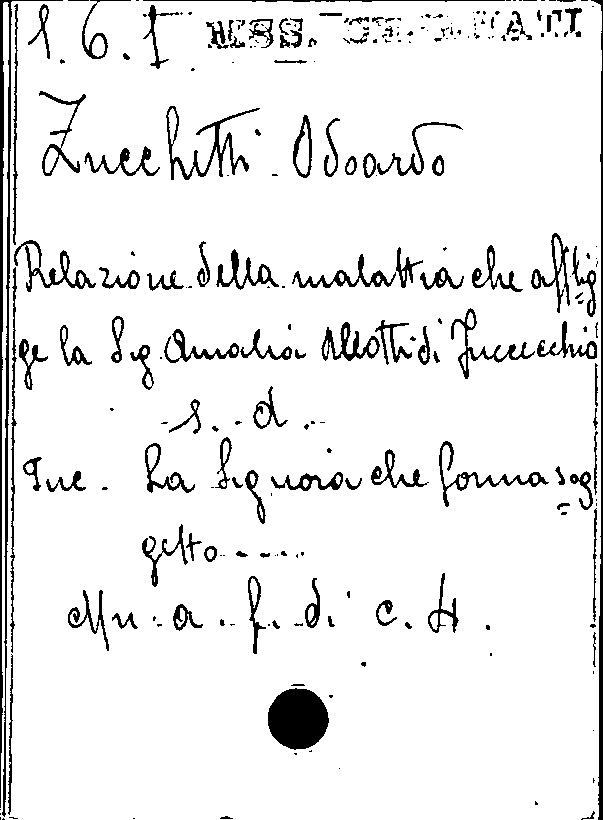 1.6.1 MSS.
Zucchetti Odoardo
Relazione della malattia che afflig=
ge la Sig. Amalia di Fucecchio
s. d.
Inc. La Signora che forma sog=
getto ....
Mn. a. f. di c. 4.